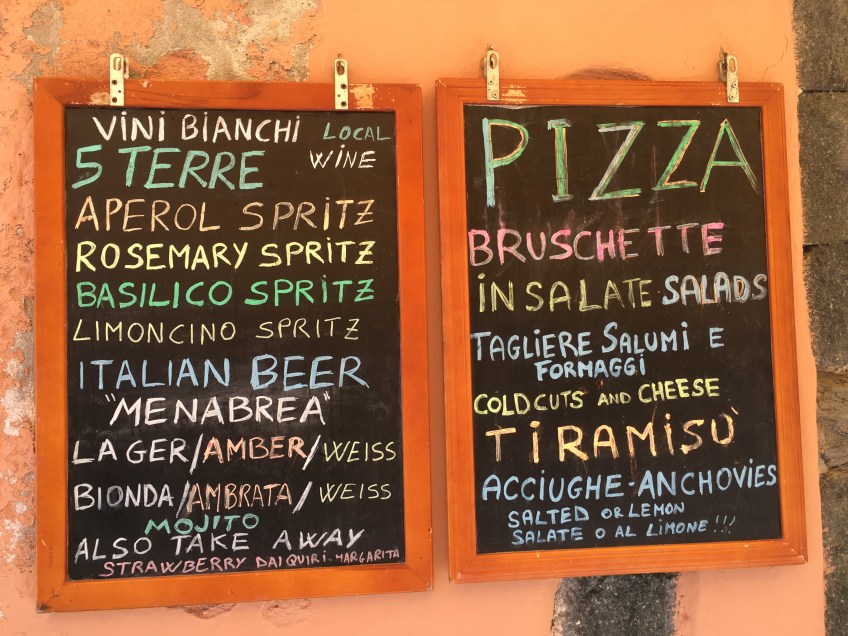 VINI BIANCHI LOCAL
5 TERRE WINE
APEROL SPRITZ
ROSEMARY SPRITZ
BASILICO SPRITZ
LIMONCINO SPRITZ
ITALIAN BEER
"MENABREA"
LAGER/AMBER/WEISS
BIONDA/AMBRATA/WEISS
MOJITO
ALSO TAKE AWAY
STRAWBERRY DAIQUIRI-MARGARITA
PIZZA
BRUSCHETTE
INSALATE SALADS
TAGLIERE SALUMI E
FORMAGGI
COLD CUTS AND CHEESE
TIRAMISÙ
ACCIUGHE-ANCHOVIES
SALTED OR LEMON
SALATE O AL LIMONE!!!